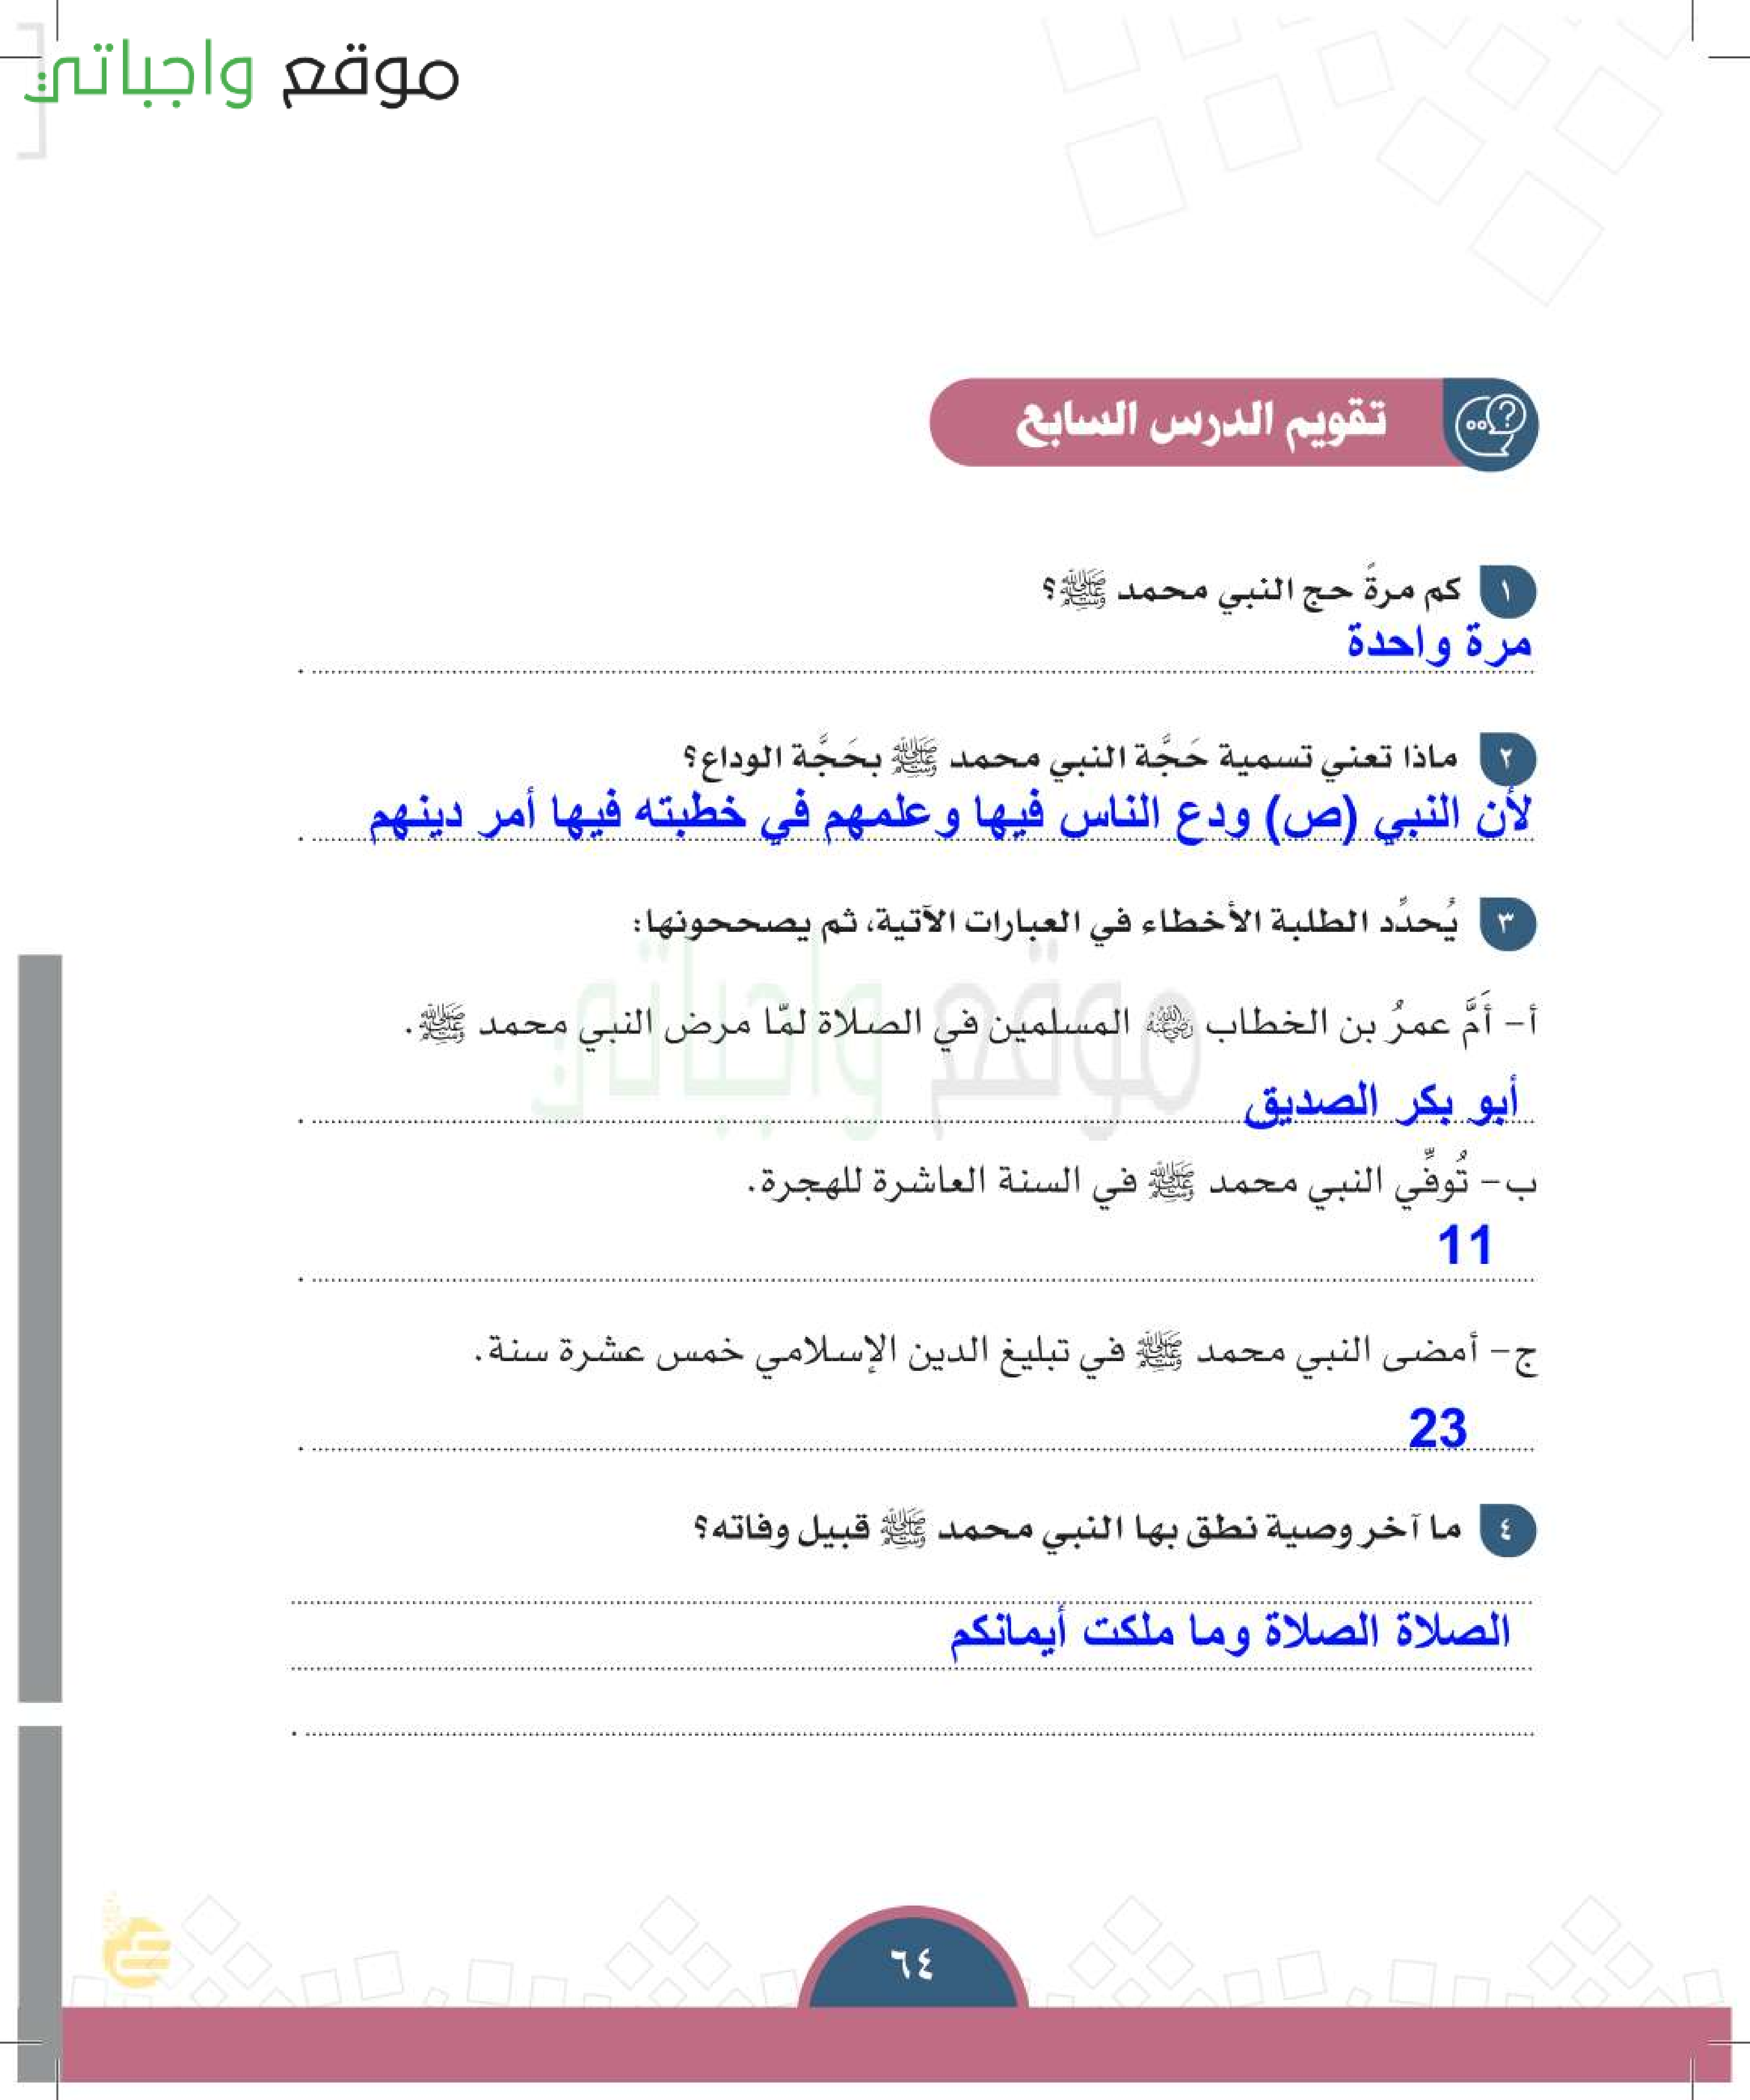 موقع واجباتي
تقويم الدرس السابع
١ كم مرةً حج النبي محمد ﷺ؟
مرة واحدة
٢ ماذا تعني تسمية حَجَّة النبي محمد ﷺ بحَجَّة الوداع؟
لأن النبي (ص) ودع الناس فيها وعلمهم في خطبته فيها أمر دينهم
٣ يُحدِّد الطلبة الأخطاء في العبارات الآتية، ثم يصححونها:
موقع واجباتي
أ- أَمَّ عمرُ بن الخطاب رضي الله عنه المسلمين في الصلاة لمّا مرض النبي محمد ﷺ.
أبو بكر الصديق
ب- تُوفِّي النبي محمد ﷺ في السنة العاشرة للهجرة.
11
ج- أمضى النبي محمد ﷺ في تبليغ الدين الإسلامي خمس عشرة سنة.
23
٤ ما آخر وصية نطق بها النبي محمد ﷺ قبيل وفاته؟
الصلاة الصلاة وما ملكت أيمانكم
٦٤